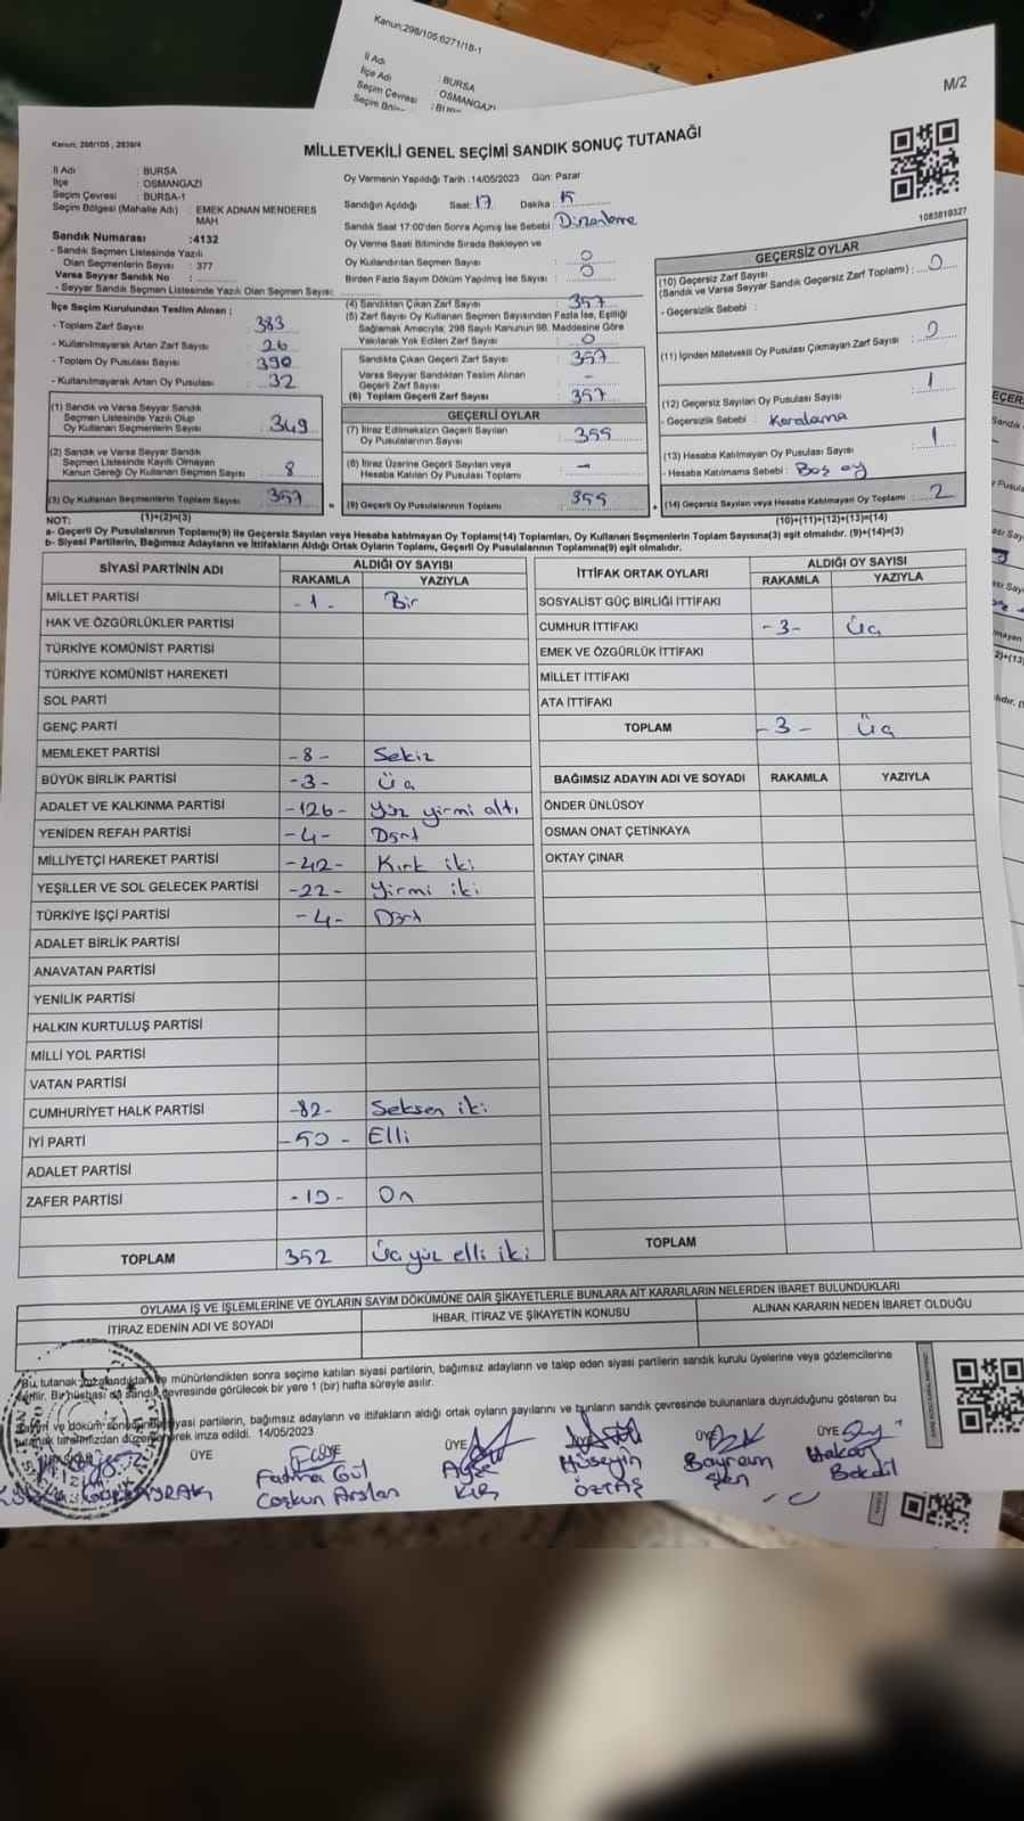 Kanun:298/105;6271/18-1
İl Adı : BURSA
İlçe Adı : OSMANGAZİ
Seçim Çevresi
M/2
Kanun: 298/105 , 2839/4
MİLLETVEKİLİ GENEL SEÇİMİ SANDIK SONUÇ TUTANAĞI
İl Adı : BURSA
İlçe : OSMANGAZİ
Seçim Çevresi : BURSA-1
Seçim Bölgesi (Mahalle Adı) : EMEK ADNAN MENDERES MAH
Sandık Numarası :4132
- Sandık Seçmen Listesinde Yazılı
Olan Seçmenlerin Sayısı : 377
Varsa Seyyar Sandık No :
- Seyyar Sandık Seçmen Listesinde Yazılı Olan Seçmen Sayısı:
Oy Vermenin Yapıldığı Tarih :14/05/2023 Gün: Pazar
Sandığın Açıldığı Saat: 17 Dakika : 15
Sandık Saat 17:00'den Sonra Açmış İse Sebebi : Düzenleme
Oy Verme Saati Bitiminde Sırada Bekleyen ve
Oy Kullandırılan Seçmen Sayısı : 0
Birden Fazla Sayım Döküm Yapılmış İse Sayısı : 0
1083819327
İlçe Seçim Kurulundan Teslim Alınan :
- Toplam Zarf Sayısı : 383
- Kullanılmayarak Artan Zarf Sayısı : 26
- Toplam Oy Pusulası Sayısı : 390
- Kullanılmayarak Artan Oy Pusulası : 32
(1) Sandık ve Varsa Seyyar Sandık
Seçmen Listesinde Yazılı Olup
Oy Kullanan Seçmenlerin Sayısı : 349
(2) Sandık ve Varsa Seyyar Sandık
Seçmen Listesinde Kayıtlı Olmayan
Kanun Gereği Oy Kullanan Seçmen Sayısı : 8
(3) Oy Kullanan Seçmenlerin Toplam Sayısı : 357
(1)+(2)=(3)
(4) Sandıktan Çıkan Zarf Sayısı : 357
(5) Zarf Sayısı Oy Kullanan Seçmen Sayısından Fazla İse, Eşitliği
Sağlamak Amacıyla; 298 Sayılı Kanunun 98. Maddesine Göre
Yakılarak Yok Edilen Zarf Sayısı : 0
Sandıkta Çıkan Geçerli Zarf Sayısı : 357
Varsa Seyyar Sandıktan Teslim Alınan
Geçerli Zarf Sayısı : -
(6) Toplam Geçerli Zarf Sayısı : 357
GEÇERLİ OYLAR
(7) İtiraz Edilmeksizin Geçerli Sayılan
Oy Pusulalarının Sayısı : 355
(8) İtiraz Üzerine Geçerli Sayılan veya
Hesaba Katılan Oy Pusulası Toplamı : -
(9) Geçerli Oy Pusulalarının Toplamı : 355
GEÇERSİZ OYLAR
(10) Geçersiz Zarf Sayısı
(Sandık ve Varsa Seyyar Sandık Geçersiz Zarf Toplamı) : 0
- Geçersizlik Sebebi :
(11) İçinden Milletvekili Oy Pusulası Çıkmayan Zarf Sayısı : 0
(12) Geçersiz Sayılan Oy Pusulası Sayısı : 1
- Geçersizlik Sebebi : Karalama
(13) Hesaba Katılmayan Oy Pusulası Sayısı : 1
- Hesaba Katılmama Sebebi : Boş oy
(14) Geçersiz Sayılan veya Hesaba Katılmayan Oy Toplamı : 2
(10)+(11)+(12)+(13)=(14)
NOT:
a- Geçerli Oy Pusulalarının Toplamı(9) ile Geçersiz Sayılan veya Hesaba katılmayan Oy Toplamı(14) Toplamları, Oy Kullanan Seçmenlerin Toplam Sayısına(3) eşit olmalıdır. (9)+(14)=(3)
b- Siyasi Partilerin, Bağımsız Adayların ve İttifakların Aldığı Ortak Oyların Toplamı, Geçerli Oy Pusulalarının Toplamına(9) eşit olmalıdır.
SİYASİ PARTİNİN ADI ALDIĞI OY SAYISI
RAKAMLA YAZIYLA
MİLLET PARTİSİ -1- Bir
HAK VE ÖZGÜRLÜKLER PARTİSİ
TÜRKİYE KOMÜNİST PARTİSİ
TÜRKİYE KOMÜNİST HAREKETİ
SOL PARTİ
GENÇ PARTİ
MEMLEKET PARTİSİ -8- Sekiz
BÜYÜK BİRLİK PARTİSİ -3- Üç
ADALET VE KALKINMA PARTİSİ -126- Yüz yirmi altı
YENİDEN REFAH PARTİSİ -4- Dört
MİLLİYETÇİ HAREKET PARTİSİ -42- Kırk iki
YEŞİLLER VE SOL GELECEK PARTİSİ -22- Yirmi iki
TÜRKİYE İŞÇİ PARTİSİ -4- Dört
ADALET BİRLİK PARTİSİ
ANAVATAN PARTİSİ
YENİLİK PARTİSİ
HALKIN KURTULUŞ PARTİSİ
MİLLİ YOL PARTİSİ
VATAN PARTİSİ
CUMHURİYET HALK PARTİSİ -82- Seksen iki
İYİ PARTİ -50- Elli
ADALET PARTİSİ
ZAFER PARTİSİ -10- On
TOPLAM 352 Üç yüz elli iki
İTTİFAK ORTAK OYLARI ALDIĞI OY SAYISI
RAKAMLA YAZIYLA
SOSYALİST GÜÇ BİRLİĞİ İTTİFAKI
CUMHUR İTTİFAKI -3- Üç
EMEK VE ÖZGÜRLÜK İTTİFAKI
MİLLET İTTİFAKI
ATA İTTİFAKI
TOPLAM -3- Üç
BAĞIMSIZ ADAYIN ADI VE SOYADI RAKAMLA YAZIYLA
ÖNDER ÜNLÜSOY
OSMAN ONAT ÇETİNKAYA
OKTAY ÇINAR
TOPLAM
OYLAMA İŞ VE İŞLEMLERİNE VE OYLARIN SAYIM DÖKÜMÜNE DAİR ŞİKAYETLERLE BUNLARA AİT KARARLARIN NELERDEN İBARET BULUNDUKLARI
İTİRAZ EDENİN ADI VE SOYADI İHBAR, İTİRAZ VE ŞİKAYETİN KONUSU ALINAN KARARIN NEDEN İBARET OLDUĞU
Bu, tutanak mühürlendikten sonra seçime katılan siyasi partilerin, bağımsız adayların ve talep eden siyasi partilerin sandık kurulu üyelerine veya gözlemcilerine
verilir. Bir nüshası da sandık çevresinde görülecek bir yere 1 (bir) hafta süreyle asılır.
Sayım ve döküm sonucunda siyasi partilerin, bağımsız adayların ve ittifakların aldığı ortak oyların sayılarını ve bunların sandık çevresinde bulunanlara duyrulduğunu gösteren bu
tutanak tarafımızdan düzenlenerek imza edildi. 14/05/2023
BAŞKAN ÜYE ÜYE ÜYE ÜYE ÜYE
Fadma Gül Coşkun Arslan
Ayşe
Hüseyin ÖZTAŞ
Bayram Şen
Hakan